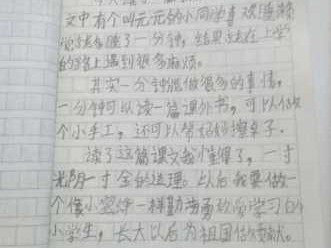 文中有个叫元元的小同学喜欢懒
觉总多睡了一分钟，结果就在上学
的路上遇到很多麻烦。
其实一分钟能做很多的事情，
一分钟可以读一篇课外书，可以做
个小手工，还可以帮妈妈擦桌子。
读了这篇课文我懂得了，一寸
光阴一寸金的道理。以后我要做一
个像小蜜蜂一样勤劳勇敢爱学习的
小学生，长大以后为祖国做贡献。